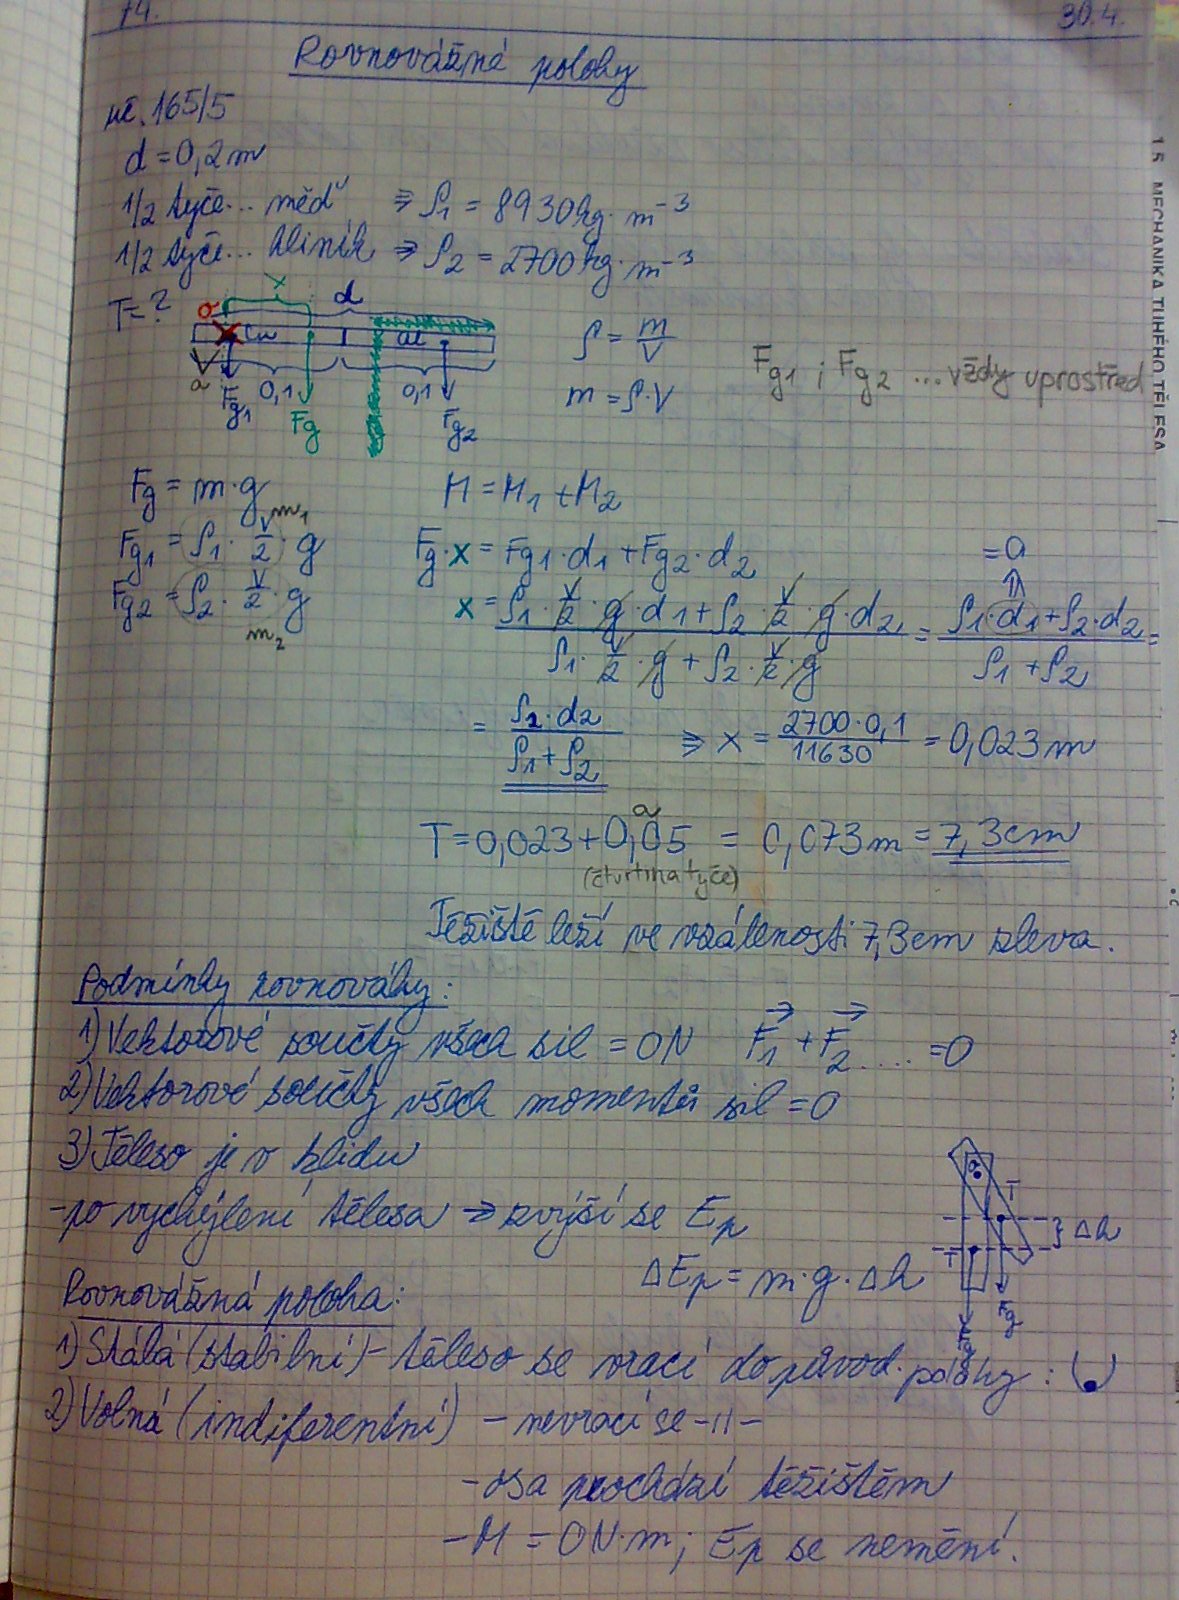 74. 30.4.
Rovnovážné polohy
uč. 165/5
d = 0,2 m
1/2 tyče... měď ⇒ ρ₁ = 8930 kg·m⁻³
1/2 tyče... hliník ⇒ ρ₂ = 2700 kg·m⁻³
T = ?
x
d
o
Cu
Al
a
0,1
0,1
Fg1
Fg
Fg2
ρ = m/V
m = ρ·V
Fg1 i Fg2 ... vždy uprostřed
Fg = m·g
M = M₁ + M₂
m₁
Fg1 = ρ₁ · V/2 · g
Fg · x = Fg1 · d₁ + Fg2 · d₂
= 0
Fg2 = ρ₂ · V/2 · g
m₂
x = (ρ₁ · V/2 · g · d₁ + ρ₂ · V/2 · g · d₂)/(ρ₁ · V/2 · g + ρ₂ · V/2 · g) = (ρ₁ · d₁ + ρ₂ · d₂)/(ρ₁ + ρ₂) =
= (ρ₂ · d₂)/(ρ₁ + ρ₂) ⇒ x = (2700 · 0,1)/11630 = 0,023 m
a
T = 0,023 + 0,05 = 0,073 m = 7,3 cm
(čtvrtina tyče)
Těžiště leží ve vzálenosti 7,3 cm zleva.
Podmínky rovnováhy:
1) Vektorové součty všech sil = 0N F₁ + F₂ .... = 0
2) Vektorové součty všech momentů sil = 0
3) Těleso je v klidu
- po vychýlení tělesa ⇒ zvýší se Ep
ΔEp = m·g·Δh
o
T
T
Δh
Fg
Fg
Rovnovážná poloha:
1) Stálá (stabilní) - těleso se vrací do původ. polohy :
2) Volná (indiferentní) - nevrací se -11-
- osa prochází těžištěm
- M = 0 N·m; Ep se nemění.
1.5 MECHANIKA TUHÉHO TĚLESA